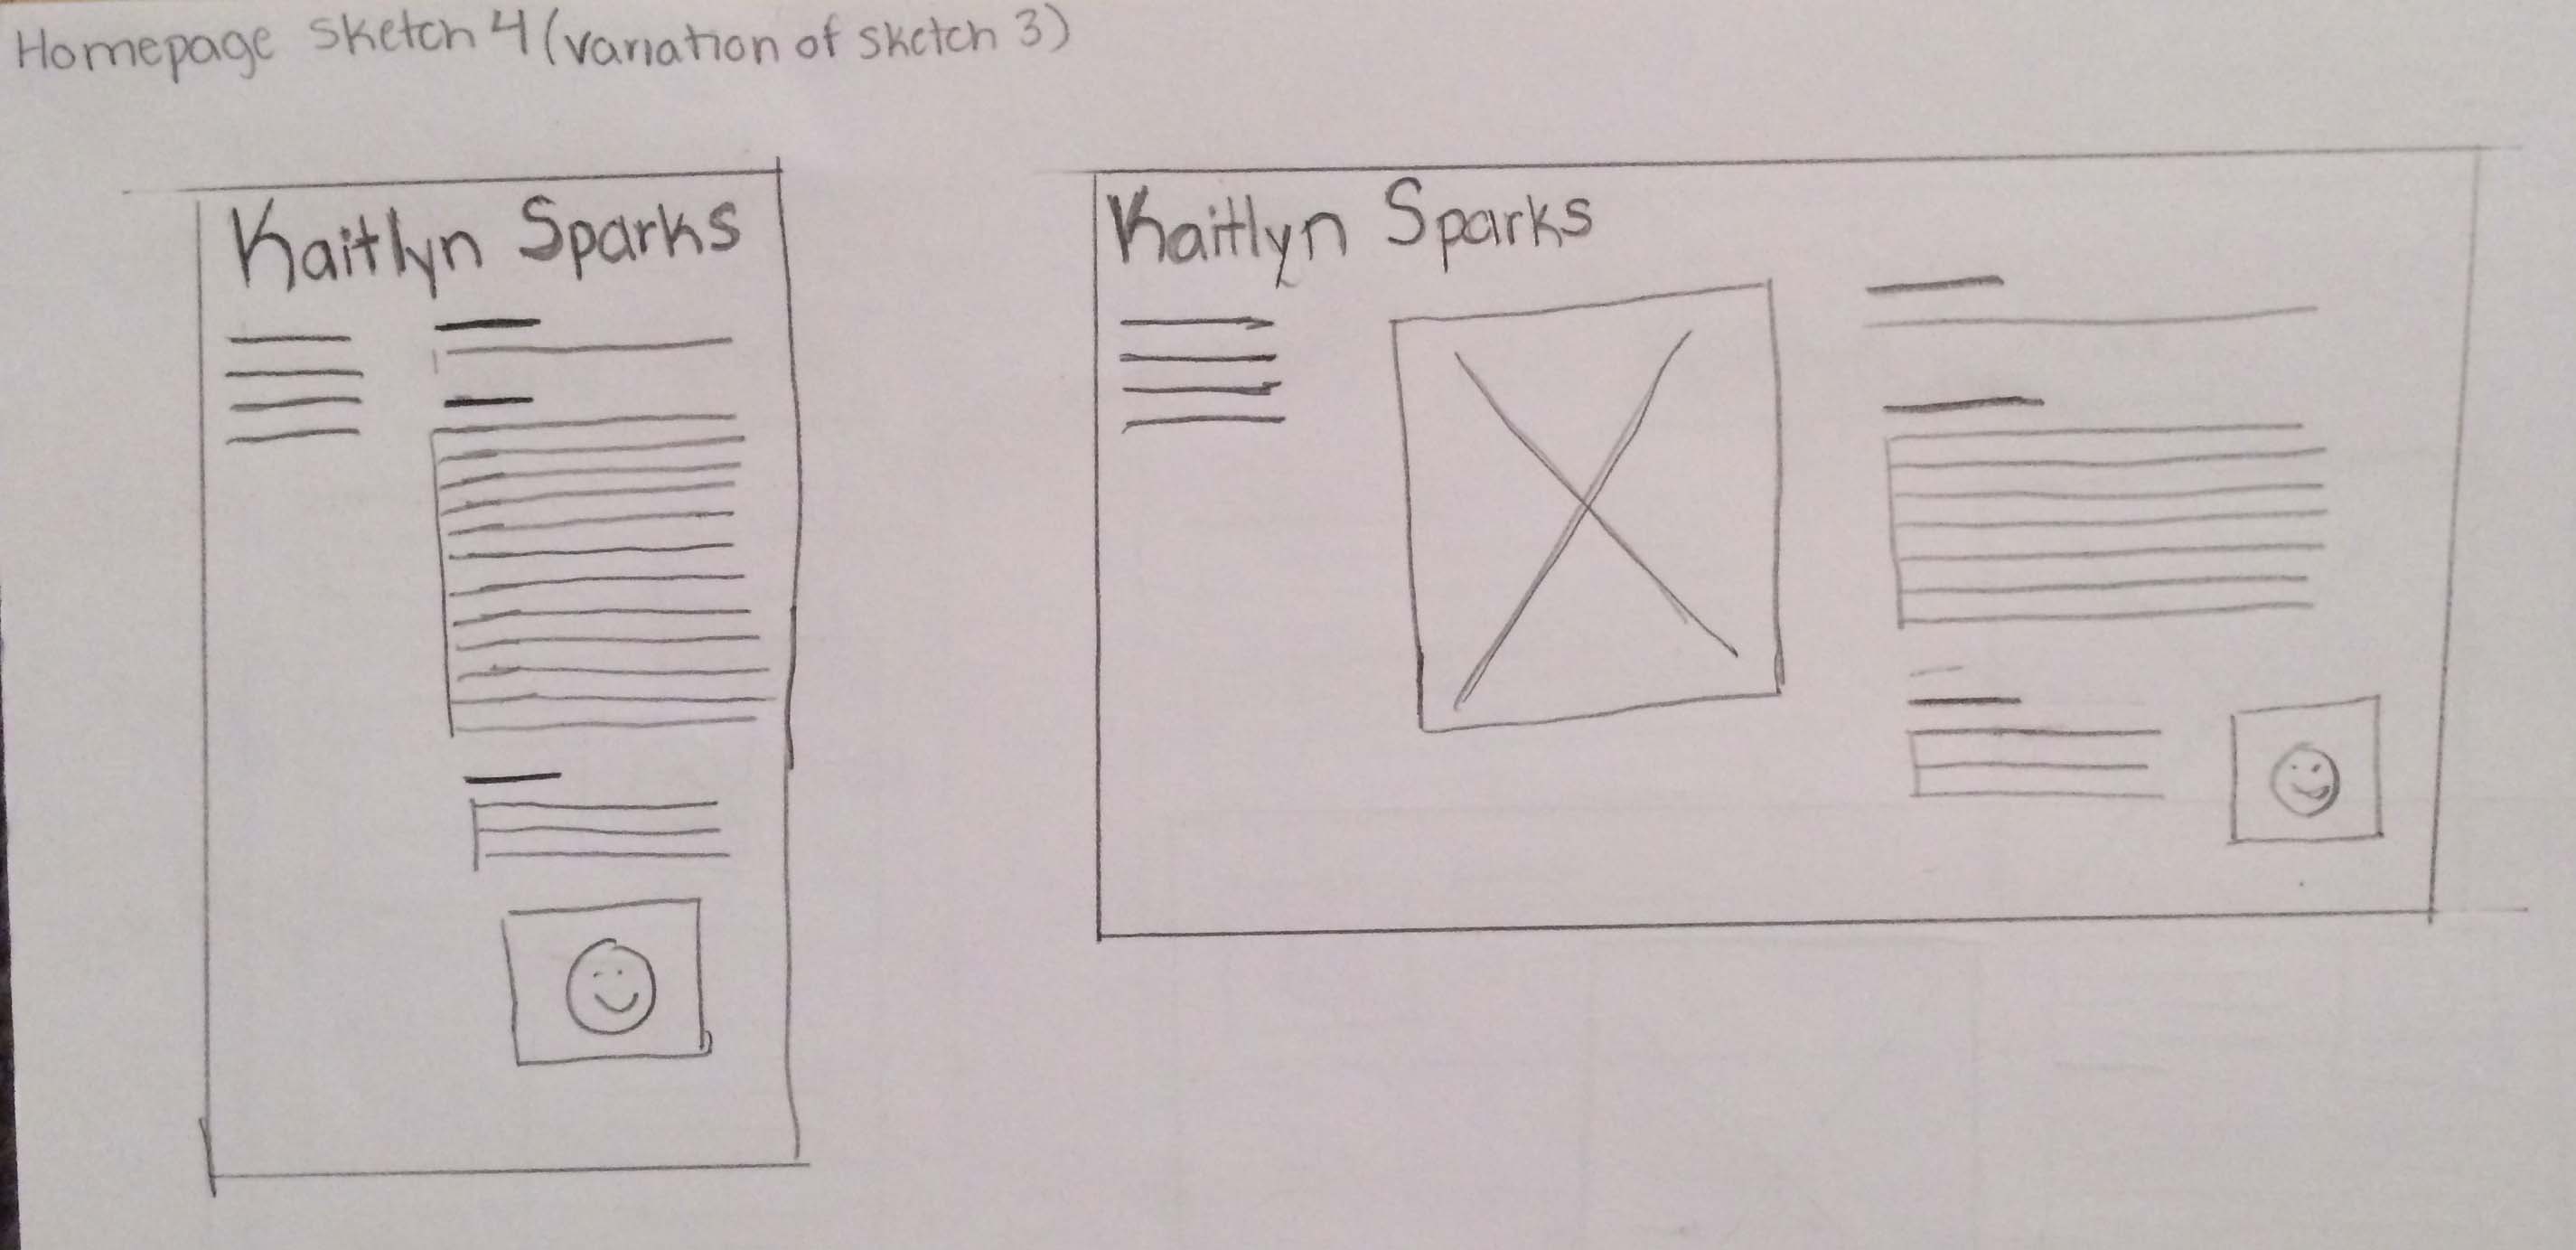 Homepage sketch 4 (variation of sketch 3)
Kaitlyn Sparks
Kaitlyn Sparks